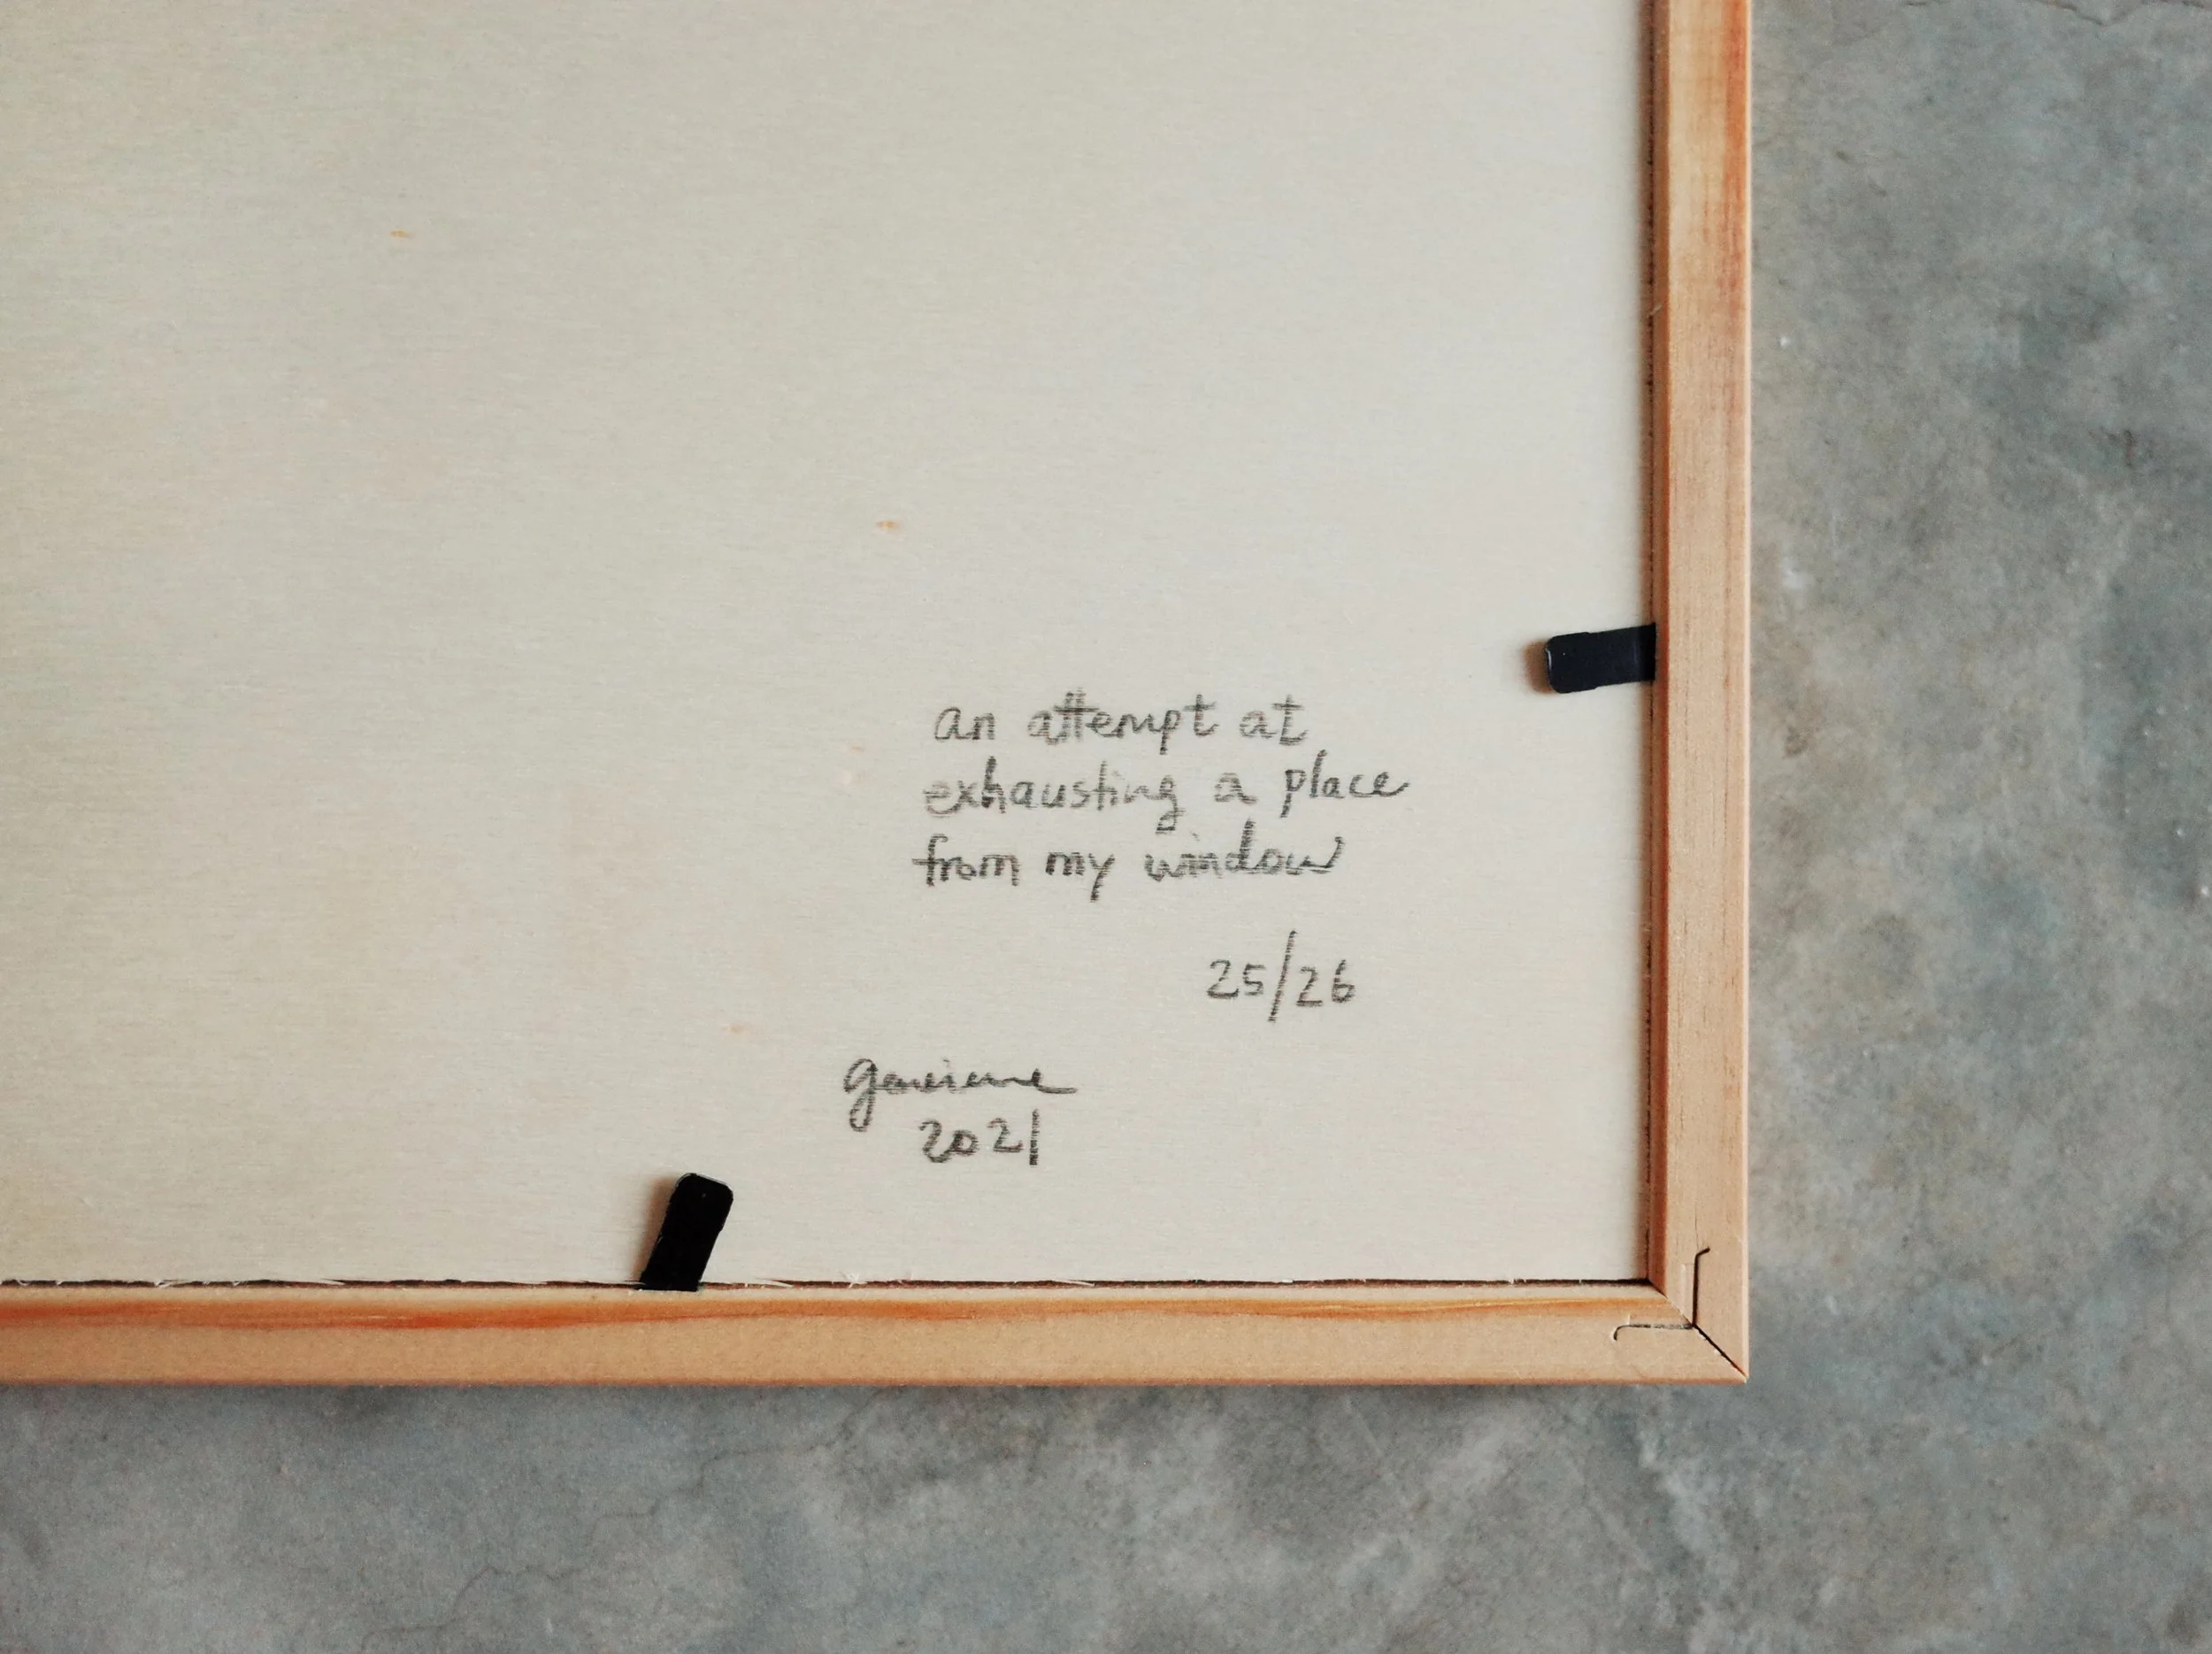 an attempt at
exhausting a place
from my window
25/26
2021